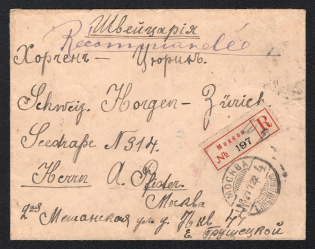 Швейцарія
Recommandée
Хорченъ - Цюрихъ.
Schweiz. Horgen - Zürich.
Seestraße N 314
Herrn A. Pfister.
Москва
№ 197
R
МОСКВА
Москва
2ая Мещанская ул. д.
Е. Грушецкой